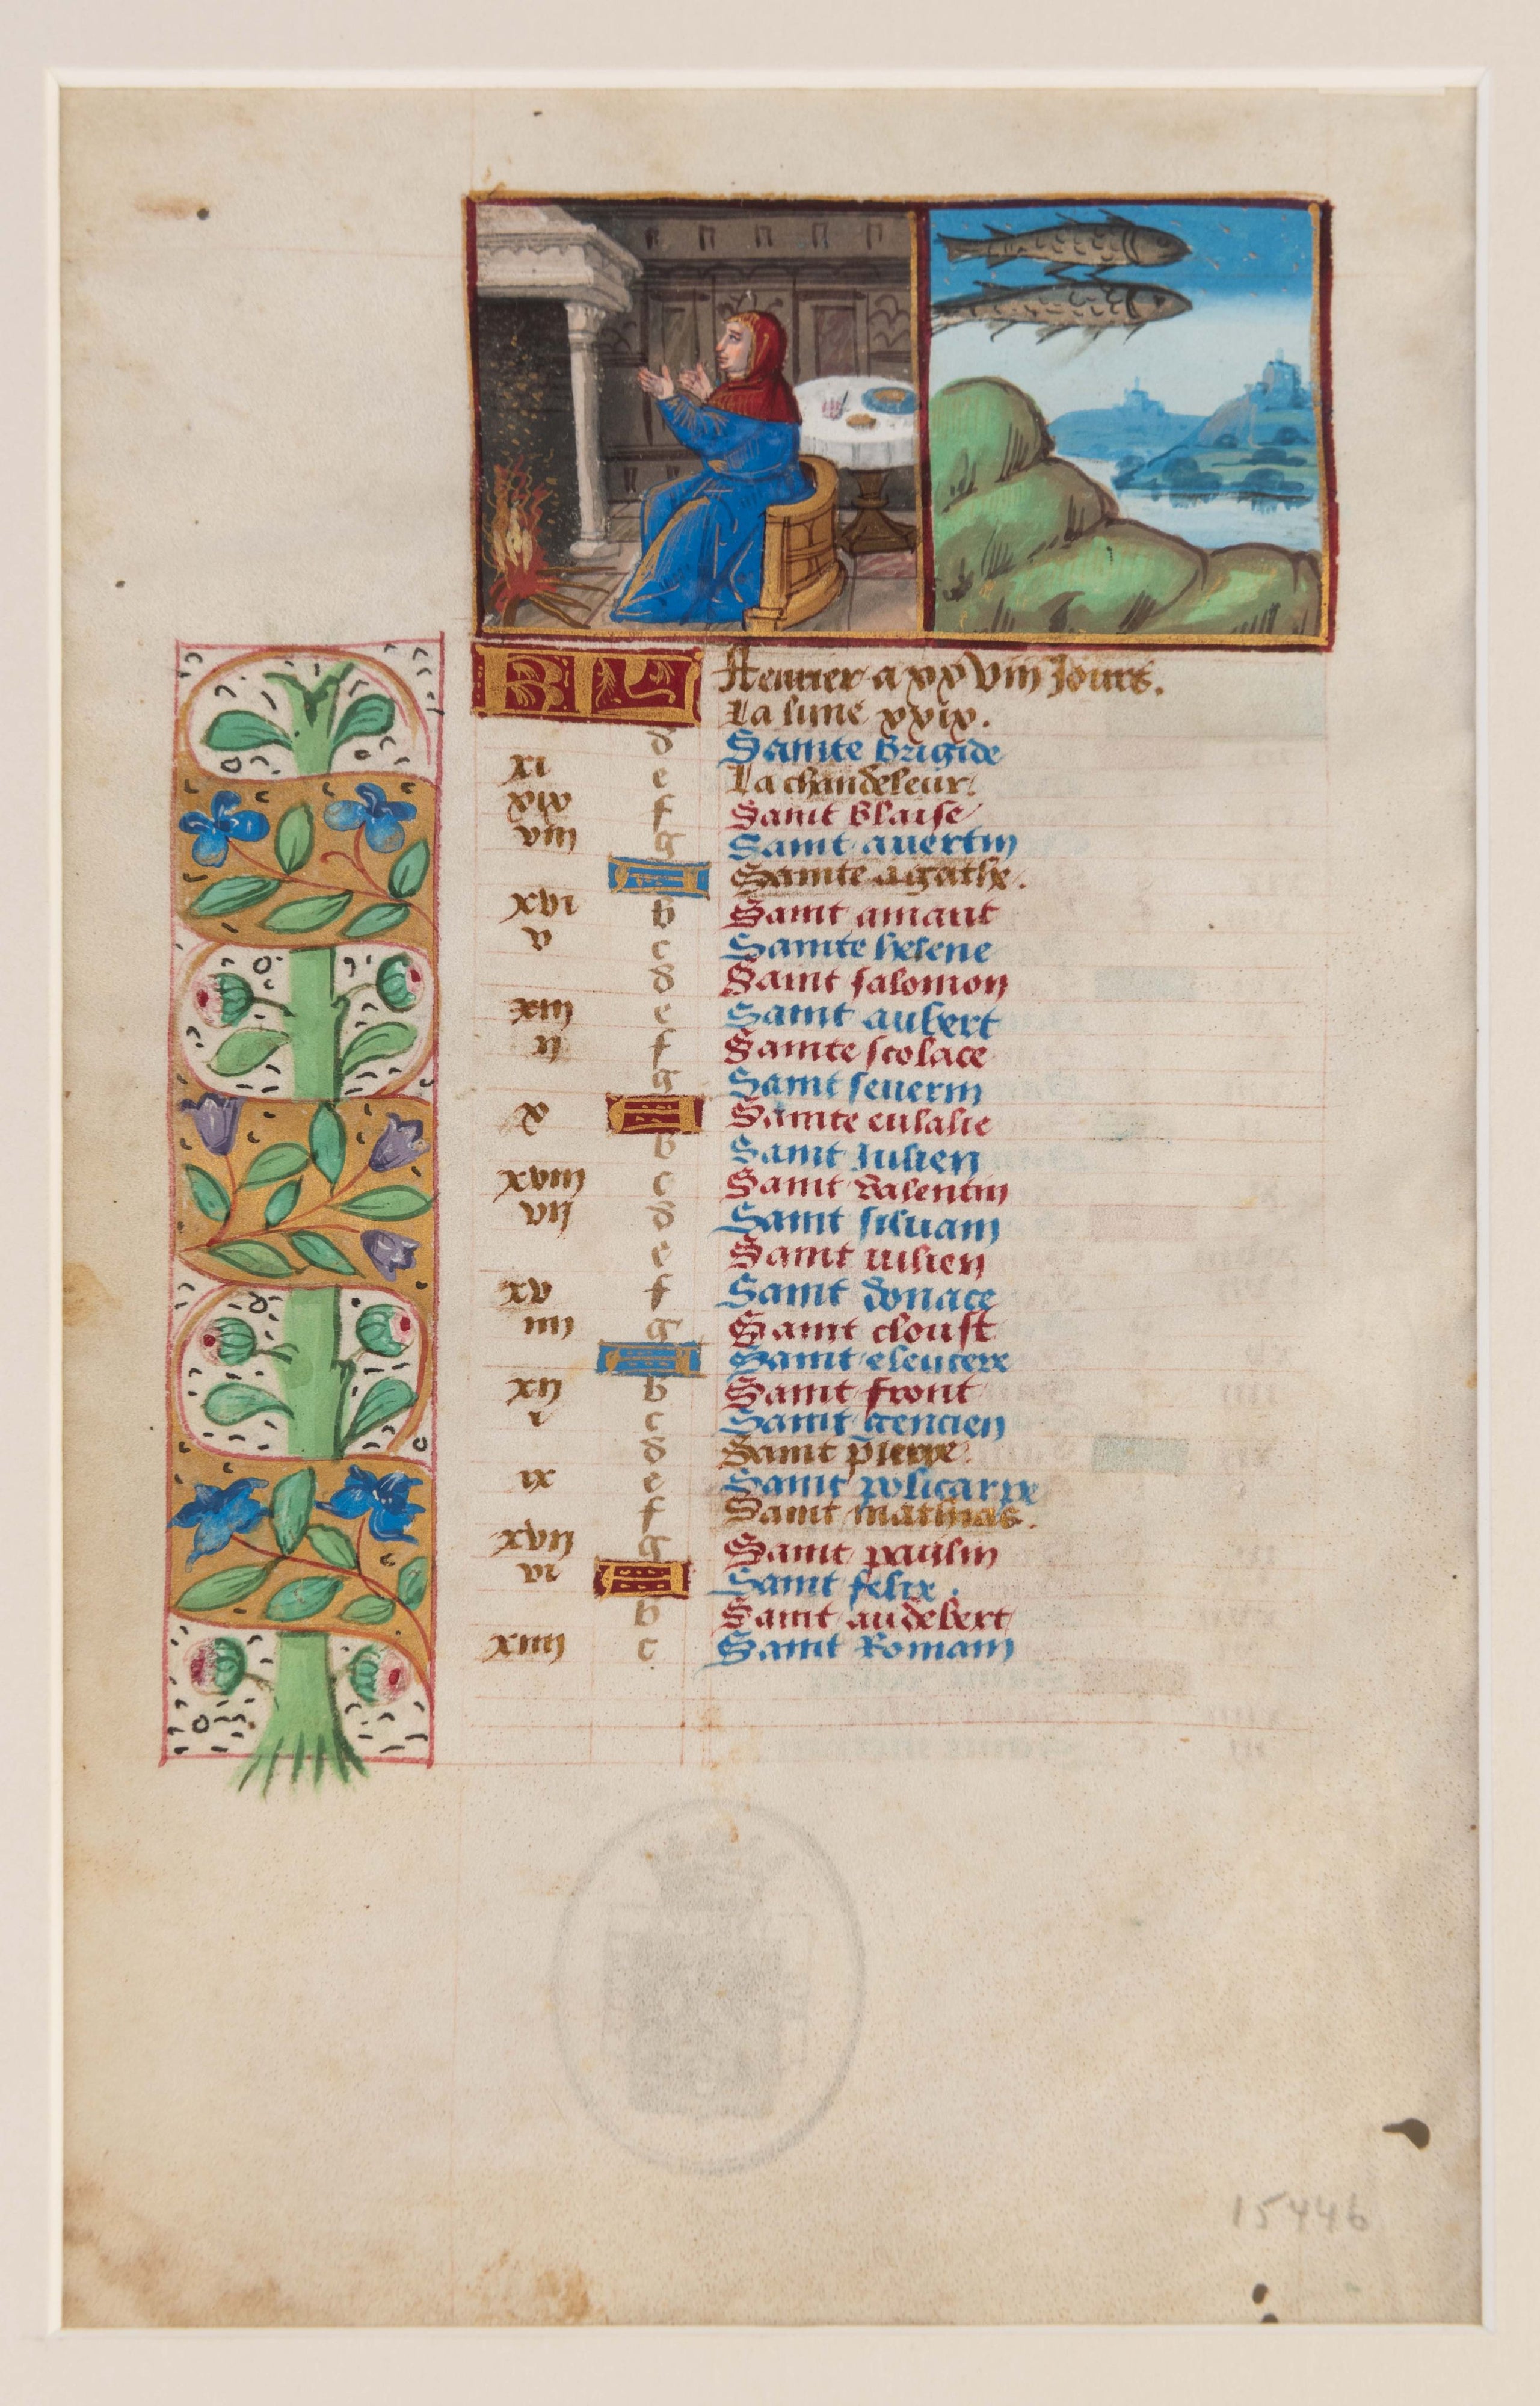 KL feurier a xxviii Jours.
La lune xxix.
d Sainte Brigide
xi e La chandeleur.
xix f Saint Blaise
viii g Saint auertin
Sainte agathe.
xvi b Saint amant
v c Sainte helene
d Saint salomon
xiii e Saint aubert
ii f Sainte scolace
g Saint seuerin
x Sainte eulalie
b Saint Julien
xviii c Saint valentin
vii d Saint siluain
e Saint iulien
xv f Saint donace
iiii g Saint cloust
Saint eleutere
xii b Saint front
i c Saint gencien
d Saint pierre.
ix e Saint policarpe
f Saint mathias.
xvii g Saint paulin
vi Saint felix.
b Saint audebert
xiiii c Saint Romain
15446